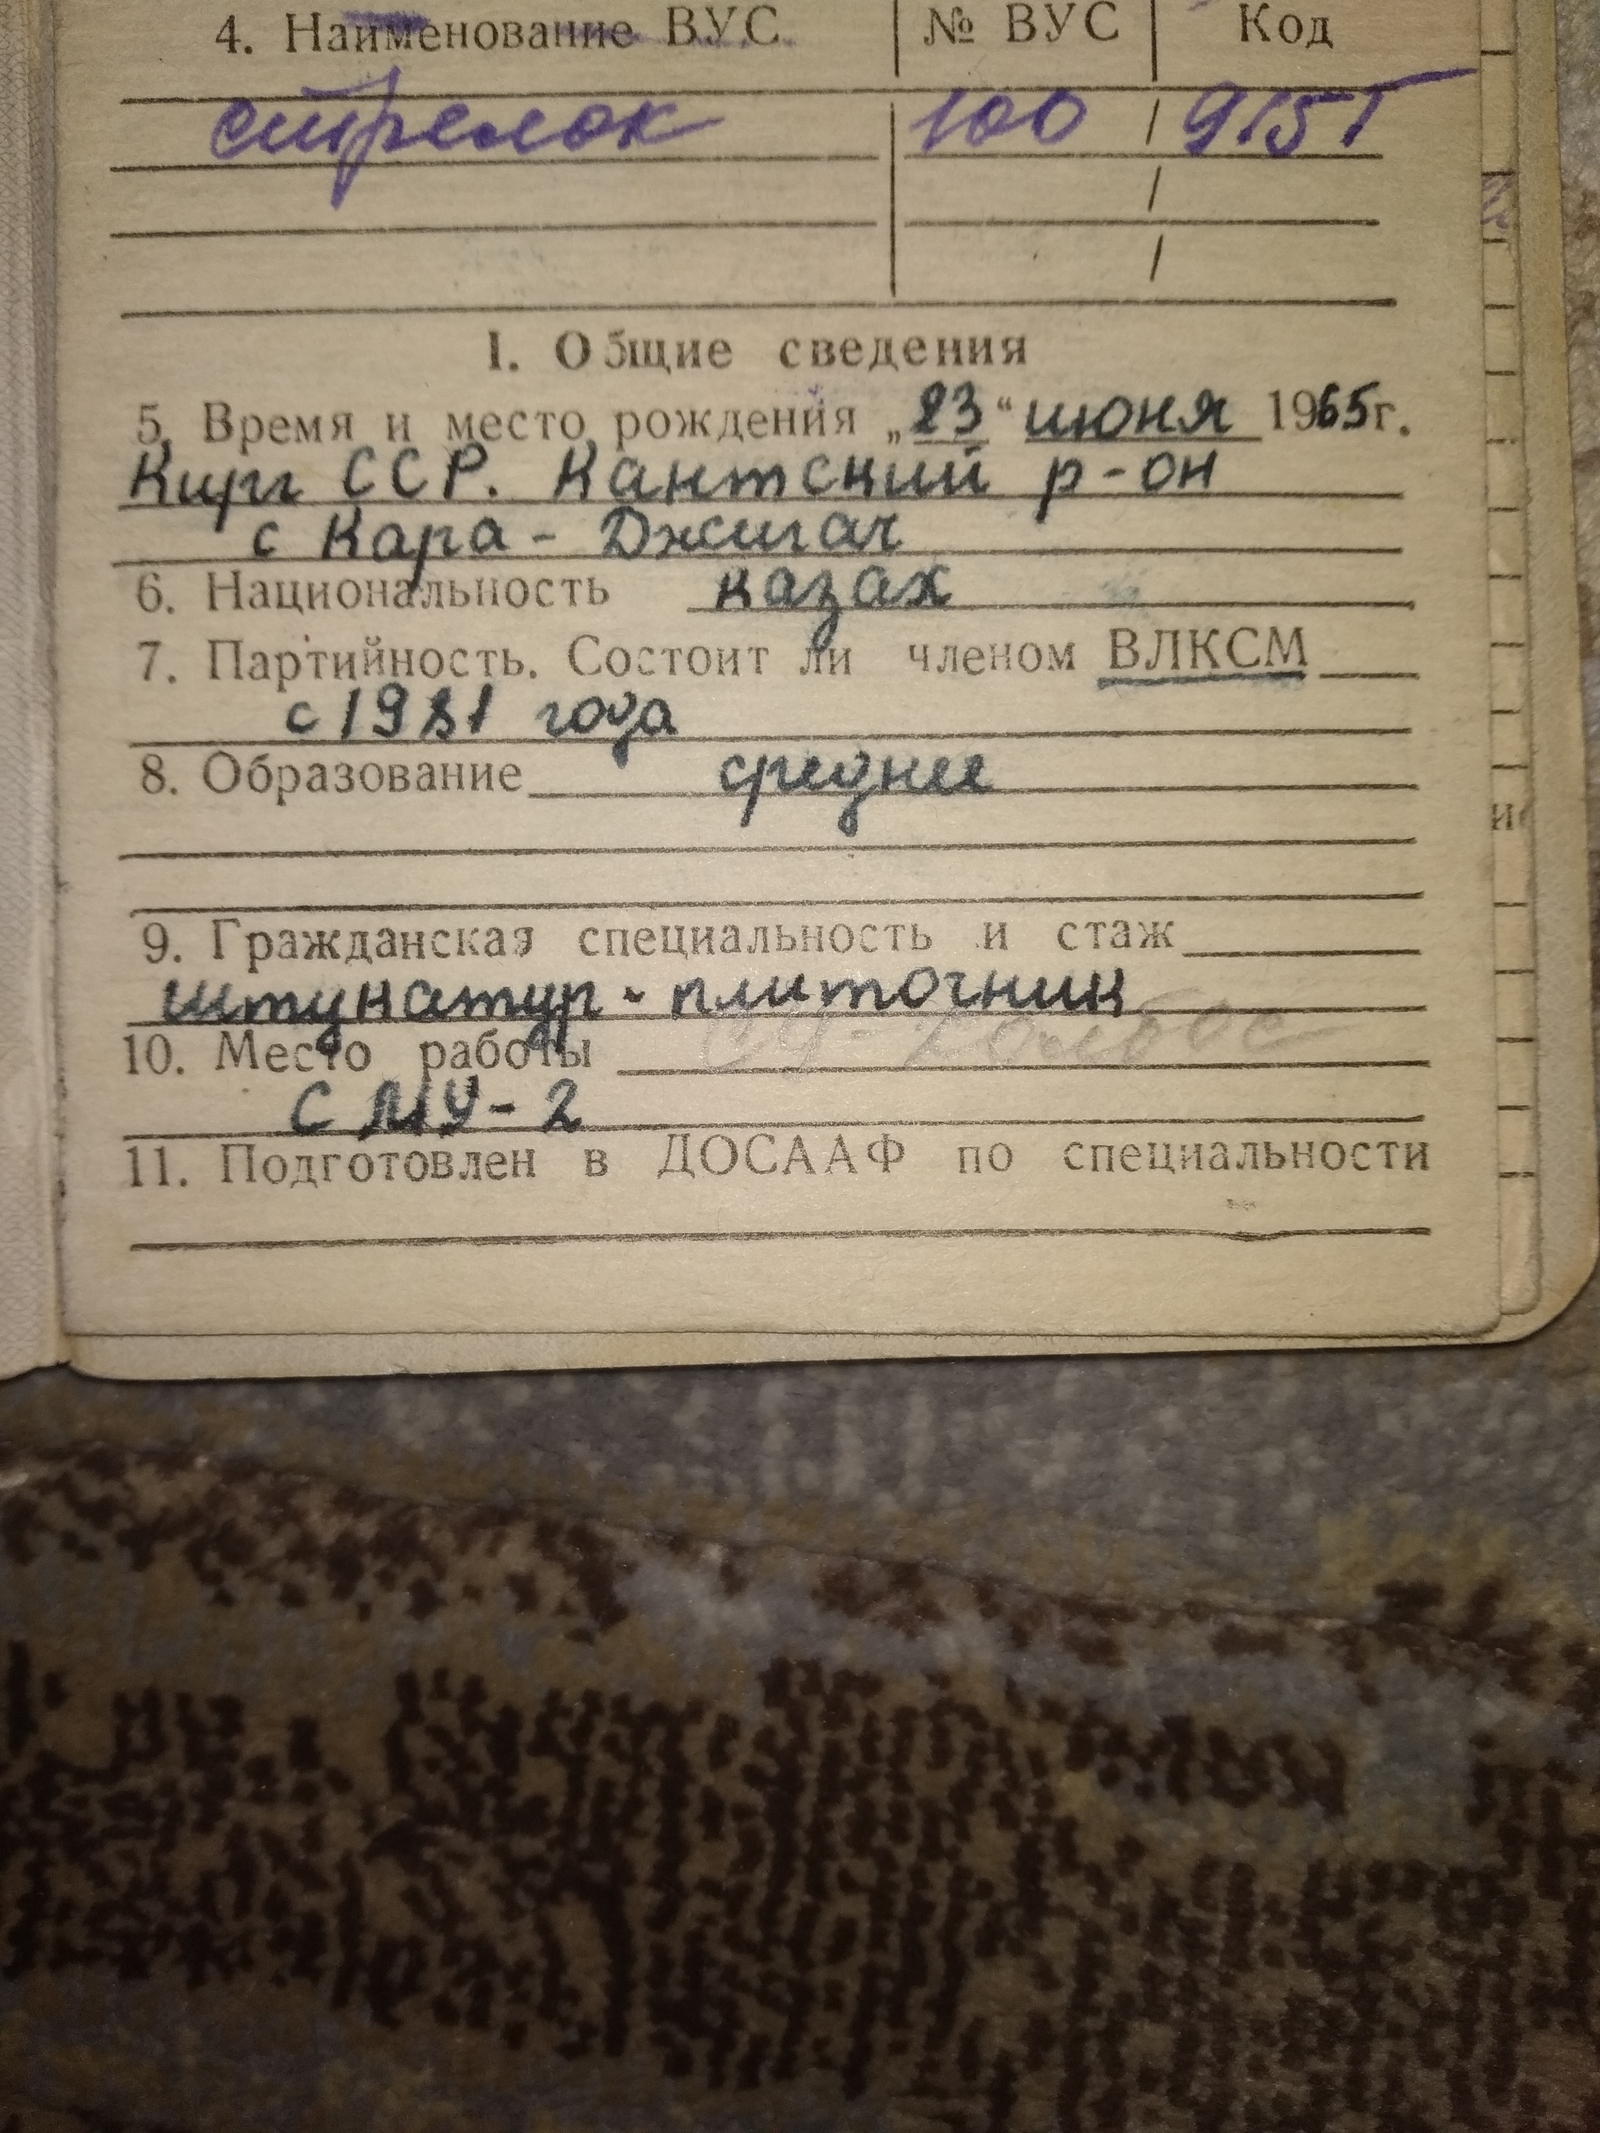 4. Наименование ВУС № ВУС Код
стрелок 100 915Г
I. Общие сведения
5. Время и место рождения „23“ июня 1965г.
Кирг ССР. Кантский р-он
с Кара - Джигач
6. Национальность казах
7. Партийность. Состоит ли членом ВЛКСМ
с 1981 года
8. Образование среднее
9. Гражданская специальность и стаж
штукатур - плиточник
10. Место работы
СМУ-2
11. Подготовлен в ДОСААФ по специальности